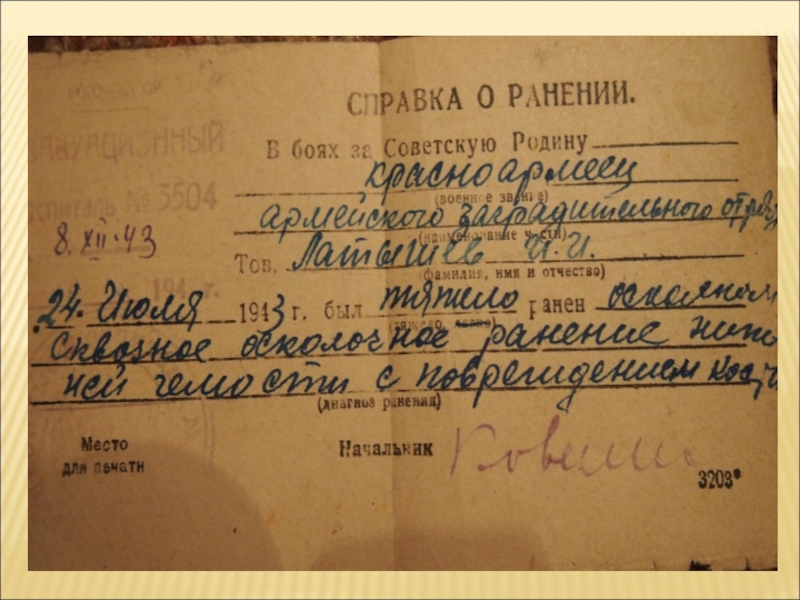 СПРАВКА О РАНЕНИИ.
ЭВАКУАЦИОННЫЙ
В боях за Советскую Родину
госпиталь № 3504
красноармеец
(военное звание)
армейского заградительного отряда
(наименование части)
8.XII.43
Тов. Латышев И.И.
(фамилия, имя и отчество)
194 г.
24. Июля 1943 г. был тяжело ранен осколком
(тяжело, легко)
Сквозное осколочное ранение ниж
ней чемости с повреждением кости
(диагноз ранения)
Место
для печати
Начальник
3203*